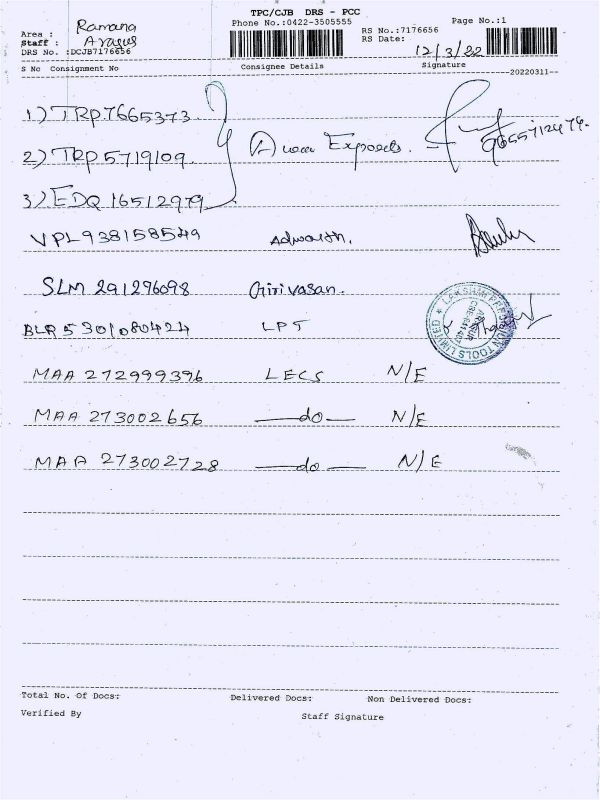 TPC/CJB DRS - PCC
Phone No.:0422-3505555
Page No.:1
Area : Ramana
Staff :
DRS No. :DCJB7176656
RS No.:7176656
RS Date: 12/3/22
S No Consignment No Consignee Details Signature
--20220311--
1) TRP7665373
2) TRP5719109
3) EDQ16512979
VPL938158549
SLM 291296098 Girivasan.
BLR5301080424 LPT
MAA 272999396 LECS N/E
MAA 273002656 —do— N/E
MAA 273002728 —do— N/E
LAKSHMI PRECISION TOOLS LIMITED
Total No. Of Docs: Delivered Docs: Non Delivered Docs:
Verified By Staff Signature